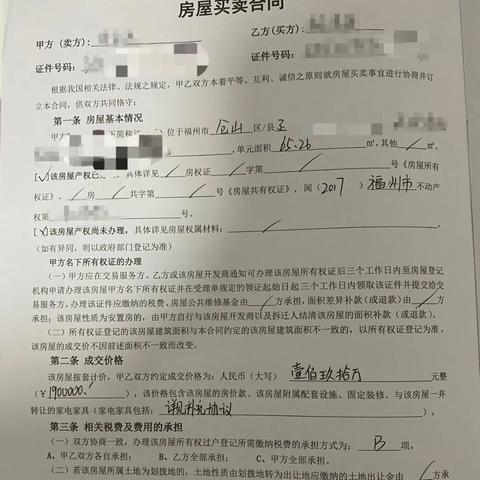 房屋买卖合同
甲方（卖方）：
乙方（买方）：
证件号码：
证件号码：
根据我国相关法律、法规之规定，甲乙双方本着平等、互利、诚信之原则就房屋买卖事宜进行协商并订
立本合同，供双方共同恪守：
第一条 房屋基本情况
甲方 位于福州市 仓山 区/县
，单元面积 65.26 m²，其他 / m²，
[√]该房屋产权已 ，具体详见 / 房权证 / 字第 / 号《房屋所有
权证》、 / 房 / 共字第 / 号《房屋共有权证》，闽（2017）福州市 不动产
权第 号。
[√]该房屋产权尚未办理，具体详见房屋权属材料： /
（如有异同，则以政府部门登记为准）
甲方名下所有权证的办理
（一）甲方应在交易服务方、乙方或该房屋开发商通知可办理该房屋所有权证后三个工作日内至房屋登记
机构申请办理该房屋甲方名下所有权证并在受理单规定的领证起始日起三个工作日内领取该证件并提交给交
易服务方，办理该证件应缴纳的税费、房屋公共维修基金由 / 方承担，面积差异补款（或退款）由 / 方承
担；该房屋性质为安置房的，由甲方自行与该房屋开发商以及拆迁人结清该房屋的面积补款（或退款）。
（二）所有权证登记的该房屋建筑面积与本合同约定的该房屋建筑面积不一致的，以所有权证登记为准，
该房屋的成交价不因前述面积不一致而改变。
第二条 成交价格
该房屋按套计价，甲乙双方约定成交价格为：人民币（大写） 壹佰玖拾万 元整
（￥1900000. ），该价格包含该房屋的房价款、该房屋附属配套设施、固定装修、与该房屋一并
转让的家电家具（家电家具包括： 详见补充协议 ）。
第三条 相关税费及费用的承担
（一）双方协商一致，办理该房屋所有权过户登记所需缴纳税费的承担方式为： B 项。
A、甲乙双方各自承担； B、乙方全部承担； C、甲方全部承担。
（二）若该房屋所属土地为划拨地的，土地性质由划拨地转为出让地应缴纳的土地出让金由 / 方承